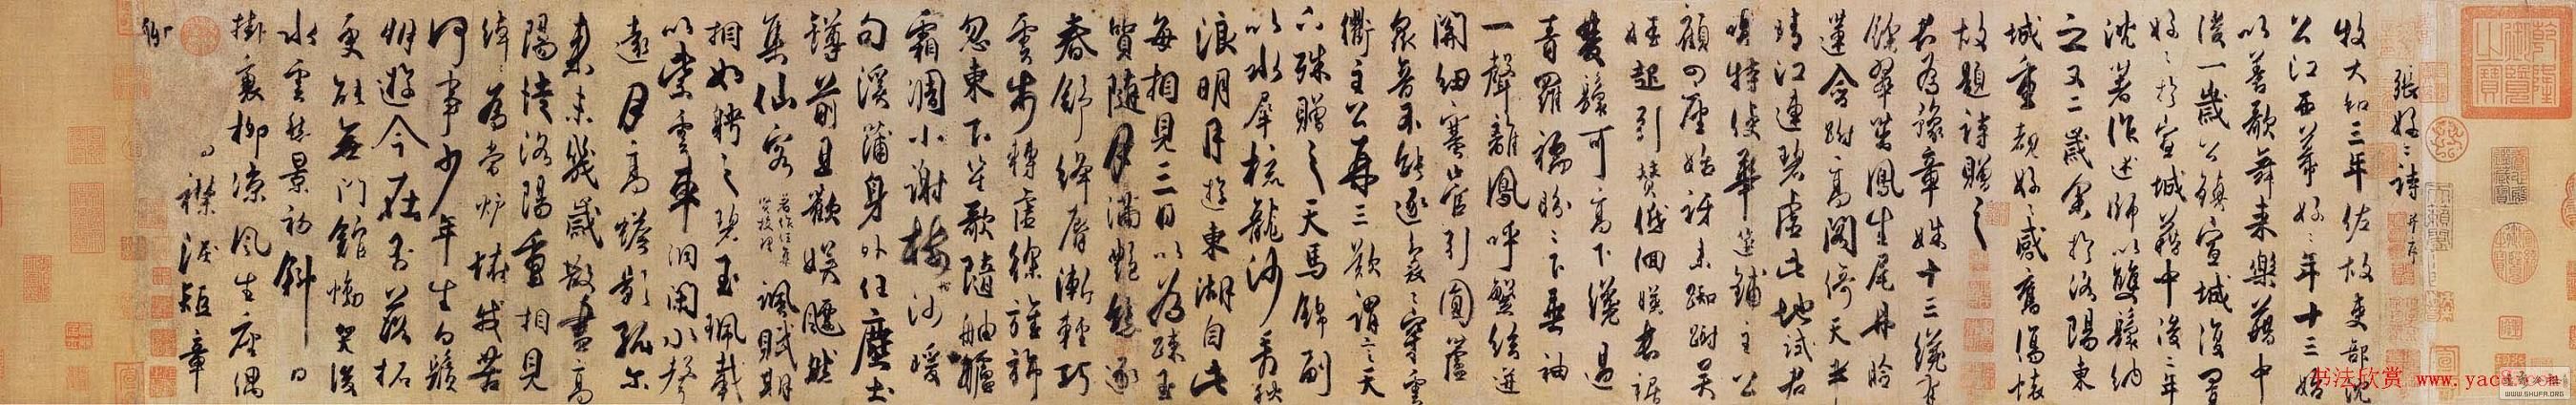 張好好詩 并序
牧大和三年佐故吏部沈
公江西幕好好年十三始
以善歌舞來樂籍中
後一歲公鎮宣城復置
好好於宣城籍中後二年
沈著作述師以雙鬟納
之又二歲余於洛陽東
城重覩好好感舊傷懷
故題詩贈之
君為豫章姝十三纔有
餘翠茁鳳生尾丹臉
蓮含跗高閣倚天半
晴江連碧虛此地試君
唱特使華筵鋪主公
顧四座始訝來踟躕吳
娃起引贊低佪映長裾
雙鬟可高下纔過
青羅襦盼盼下垂袖
一聲離鳳呼繁絃迸
關紐塞管引圓蘆
衆音不能逐裊裊穿雲
衢主公再三歎謂言天
下殊贈之天馬錦副
以水犀梳龍沙看秋
浪明月遊東湖自此
每相見三日以為疎玉
質隨月滿豔態逐
春舒絳脣漸輕巧
雲步轉虛徐旌旆
忽東下笙歌隨舳艫
霜凋小謝樹沙暖
句溪蒲身外任塵土
罇前且歡娛飄然
集仙客 著作任集賢校理 諷賦期
相如聘之碧玉珮載
以紫雲車洞閉水聲
遠月高蟾影孤爾
來未幾歲散盡高
陽徒洛陽重相見
綽綽為當壚怪我苦
何事少年生白鬚
朋遊今在否落拓
更能無門館慟哭後
水雲愁景初斜日
掛衰柳涼風生座隅
襟淚短章
聊
书法欣赏 www.yac
WWW.SHUFA.ORG